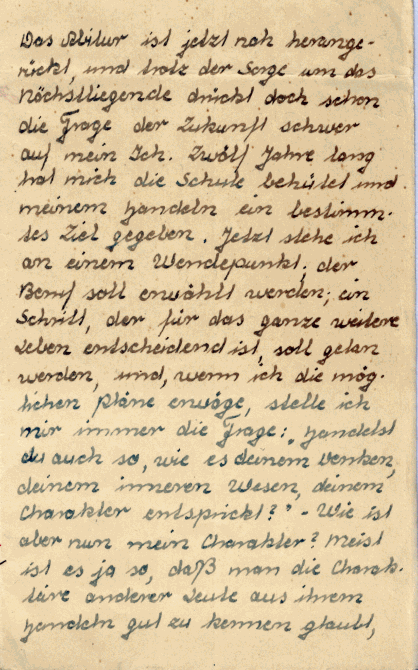 Das Abitur ist jetzt nah herange-
rückt, und trotz der Sorge um das
Nächstliegende drückt doch schon
die Frage der Zukunft schwer
auf mein Ich. Zwölf Jahre lang
hat mich die Schule behütet und
meinem Handeln ein bestimm-
tes Ziel gegeben. Jetzt stehe ich
an einem Wendepunkt, der
Beruf soll erwählt werden; ein
Schritt, der für das ganze weitere
Leben entscheidend ist, soll getan
werden, und, wenn ich die mög-
lichen Pläne erwäge, stelle ich
mir immer die Frage: „Handelst
du auch so, wie es deinem Denken,
deinem inneren Wesen, deinem
Charakter entspricht?" - Wie ist
aber nun mein Charakter? Meist
ist es ja so, daß man die Charak-
täre anderer Leute aus ihrem
Handeln gut zu kennen glaubt,